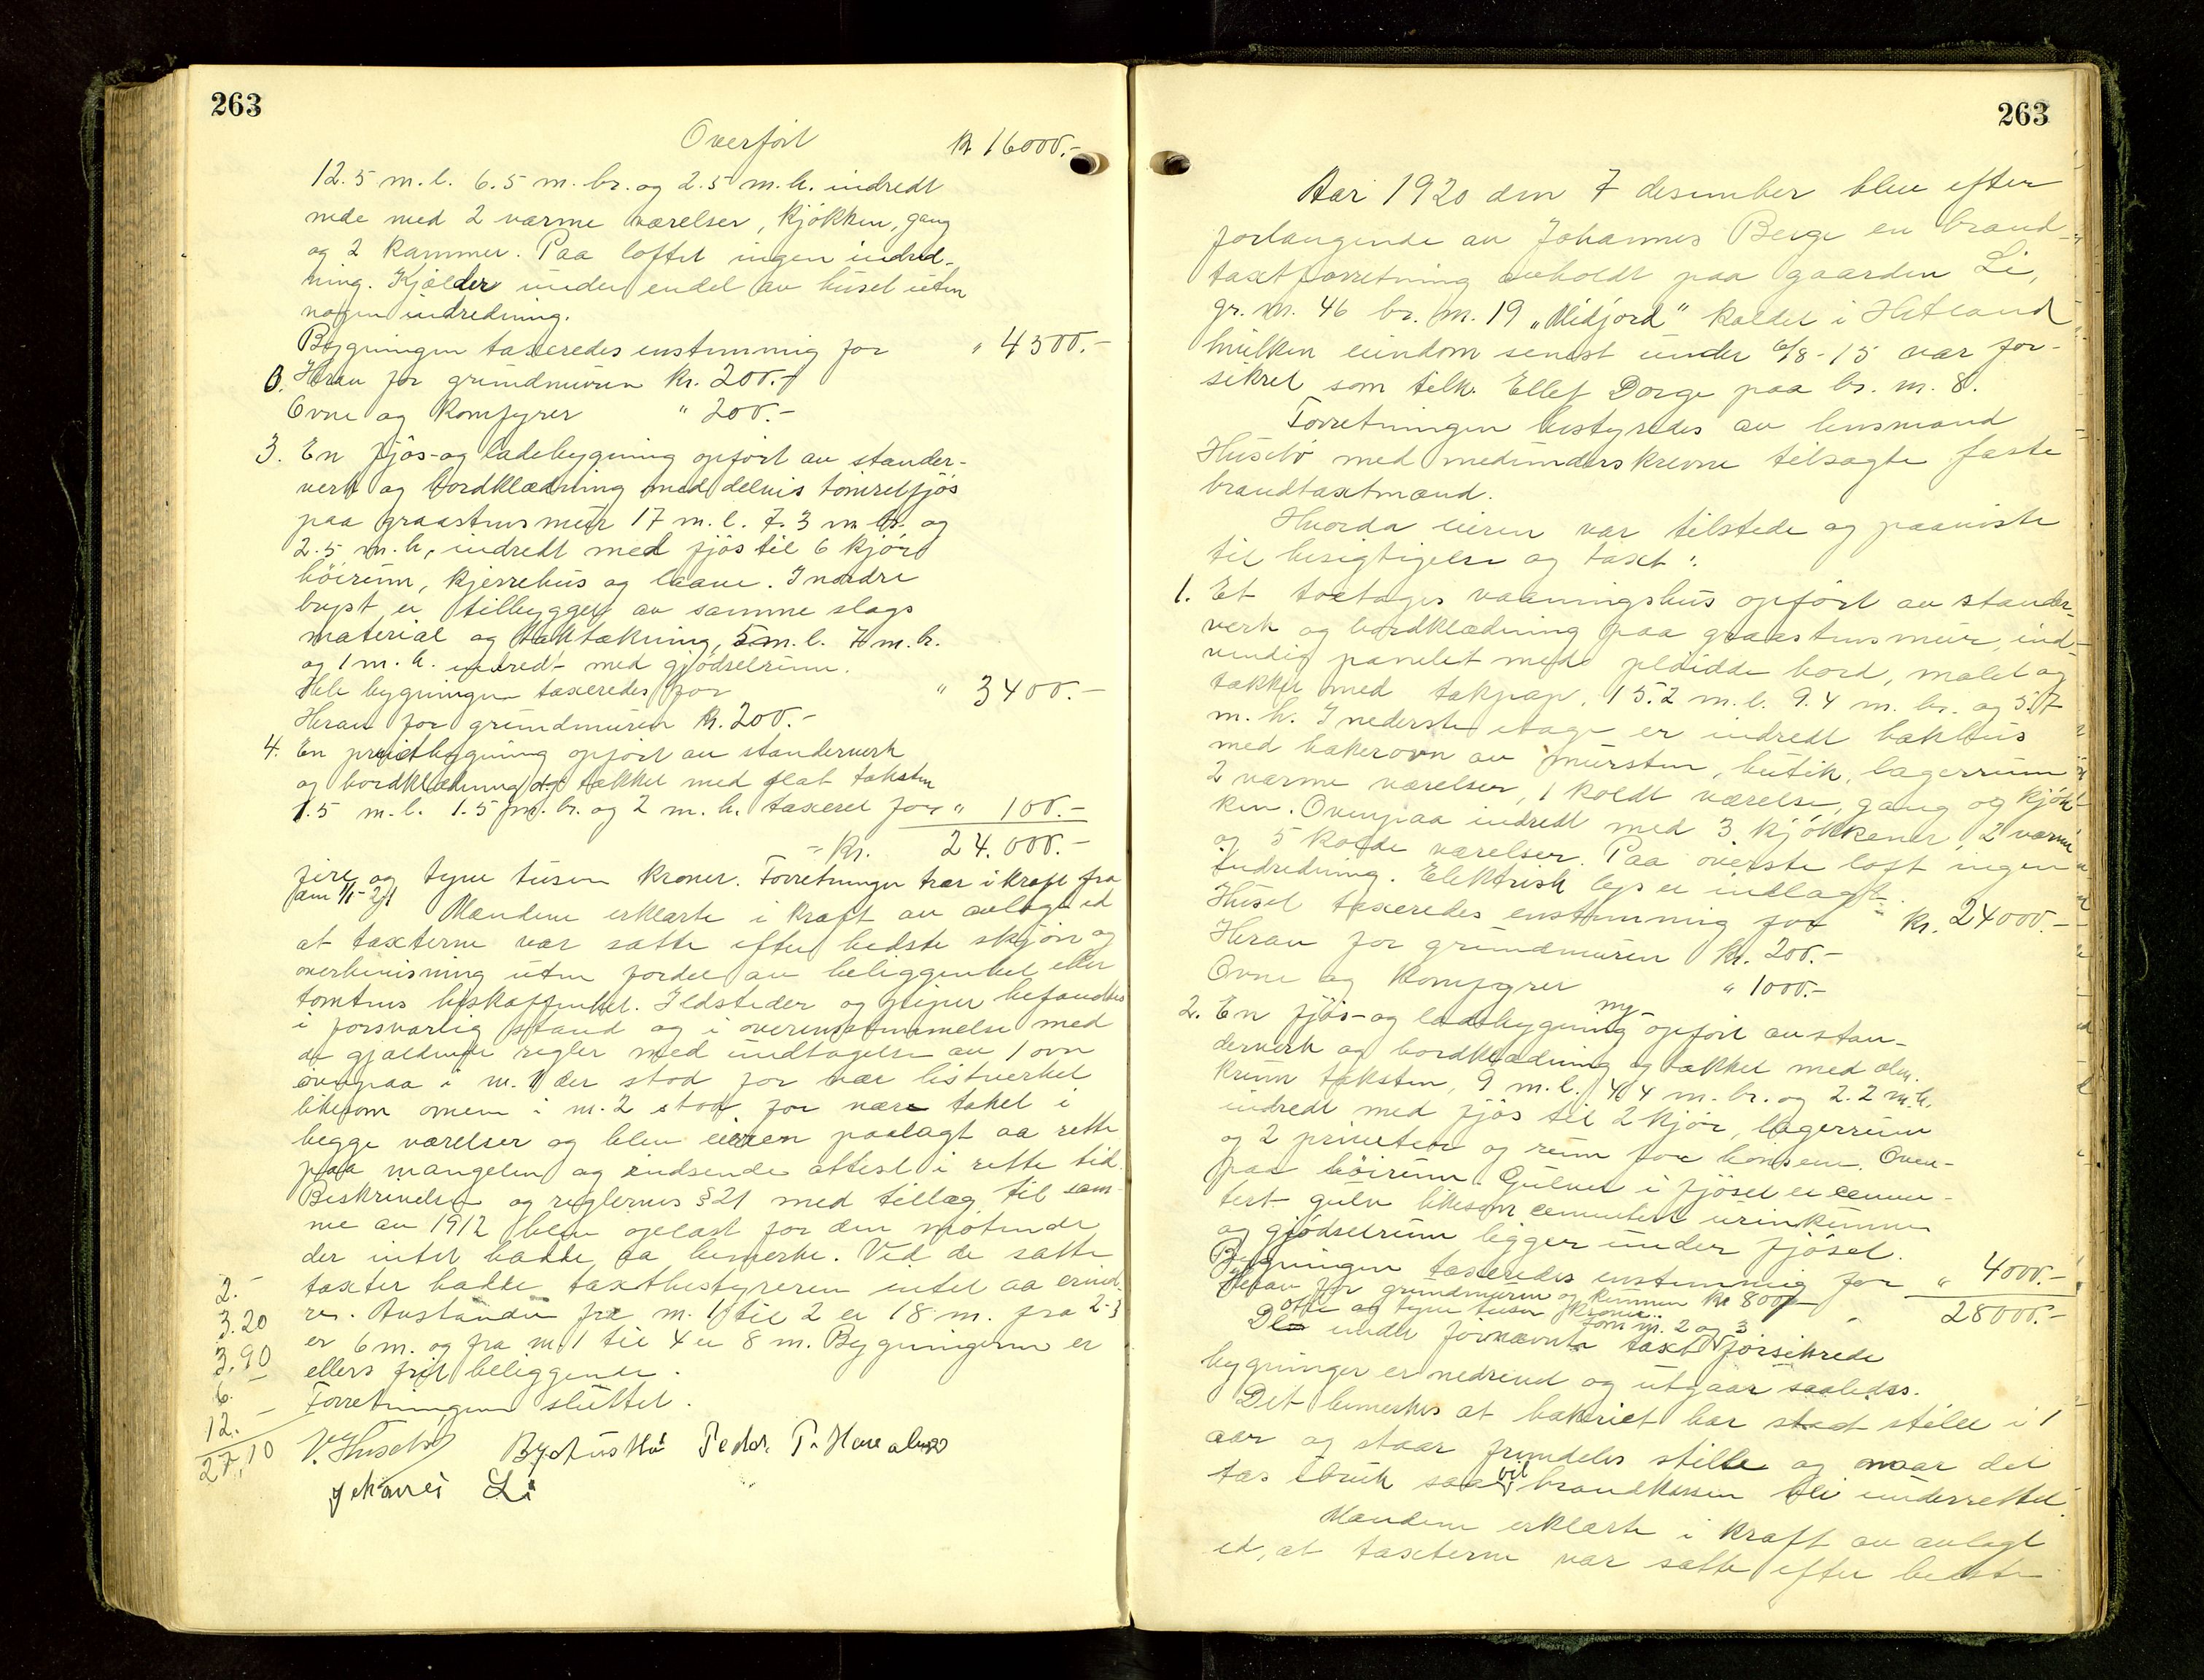 263
Overført kr 16000.-
12.5 m.l. 6.5 m. br. og 2.5 m.h. indredt
nede med 2 varme værelser, kjøkken, gang
og 2 kammer. Paa loftet ingen indred-
ning. Kjælder under endel av huset uten
nogen indredning.
Bygningen taxeredes enstemmig for " 4500.-
Herav for grundmuren kr. 200.-
Ovne og komfyrer " 200.-
3. En fjøs- og ladebygning opført av stander-
verk og bordklædning med delvis tømret fjøs
paa graastensmur 17 m.l. 7.3 m br. og
2.5 m.h. indredt med fjøs til 6 kjør
høirum, kjerrehus og laave. I nordre
er tilbygget av samme slags
material og taktækning, 5 m.l. 7 m.br.
og 1 m.h. indredt med gjødselrum.
Hele bygningen taxeredes for " 3400.-
Herav for grundmuren kr. 200.-
4. En privetbygning opført av standerverk
og bordklædning og tækket med flat taksten
1.5 m.l. 1.5 m. br. og 2 m.h. taxeret for " 100.-
= Kr. 24.000.-
fire og tyve tusen kroner. Forretningen trær i kraft fra
den 1/1-21 Mændene erklærte i kraft av avlagt ed
at taxterne var satte efter bedste skjøn og
overbevisning uten fordel av beliggenhet eller
tomtens beskaffenhet. Ildsteder og piper befandtes
i forsvarlig stand og i overensstemmelse med
de gjældende regler med undtagelse av 1 ovn
ovenpaa i nr. 1 der stod for nær listverket
likesom ovnen i nr. 2 stod for nære taket i
begge værelser og blev eieren paalagt aa rette
paa mangelen og indsende attest i rette tid.
Beskrivelsen og reglernes § 21 med tillæg til sam-
me av 1912 blev oplæst for den møtende
der intet hadde aa bemerke. Ved de satte
taxter hadde taxtbestyreren intet aa erind-
re. Avstanden fra nr. 1 til 2 er 18 m. fra 2-3
er 6 m. og fra nr 1 til 4 er 8 m. Bygningerne er
ellers frit beliggende.
Forretningen sluttet.
2.-
3.20
3.90
6.-
12.-
27,10
V. Husebø Peder T.
Johannes Li
263
Aar 1920 den 7 desember blev efter
forlangende av Johannes Berge en brand-
taxtforretning avholdt paa gaarden Li,
gr. nr. 46 br. nr. 19 „Midjord" kaldet i Hetland
hvilken eiendom senest under 6/8-15 var for-
sikret som tilh. Ellef Dorge paa br. nr. 8.
Forretningen bestyredes av lensmand
Husebø med medunderskrevne tilsagte faste
brandtaxtmænd.
Hvorda eieren var tilstede og paaviste
til besigtigelse og taxt:
1. Et toetages vaaningshus opført av stander-
verk og bordklædning paa graastensmur, ind-
vendig panelet med pløidde bord, malet og
tækket med takpap, 15.2 m.l. 9.4 m. br. og 5.7
m.h. I nederste etage er indredt bakhus
med bakerovn av mursten, butik, lagerrum
2 varme værelser, 1 koldt værelse, gang og kjøk-
ken. Ovenpaa indredt med 3 kjøkkener, 2 varme
og 5 kolde værelser. Paa øverste loft ingen
indredning. Elektrisk lys er indlagt.
Huset taxeredes enstemmig for = kr. 24000.-
Herav for grundmuren kr. 200.-
Ovne og komfyrer " 1000.-
2. En fjøs- og ladebygning ny- opført av stan-
derverk og bordklædning og tækket med alm.
krum taksten, 9 m.l. 4.4 m. br. og 2.2 m.h.
indredt med fjøs til 2 kjør, lagerrum
og 2 priveter og rum for hønsene. Oven-
paa høirum. Gulvet i fjøset er cemen-
tert gulv likesom cementert urinkummen
og gjødselrum ligger under fjøset.
Bygningen taxeredes enstemmig for " 4000.-
Herav for grundmuren og kummen kr 800.-
28000.-
otte og tyve tusen kroner.
De under fornævnte taxt som nr. 2 og 3 forsikrede
bygninger er nedrevet og utgaar saaledes.
Det bemerkes at bakeriet har staat stille i 1
aar og staar fremdeles stille og naar det
tas i bruk saa vil brandkassen bli underrettet.
Mændene erklærte i kraft av avlagt
ed, at taxterne var satte efter bedste